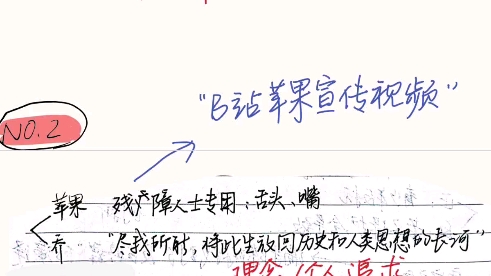 "B站苹果宣传视频"
NO.2
苹果 残疾障人士专用:舌头、嘴
乔 "尽我所能,将此生放回历史和人类思想的长河"
理念/个人追求